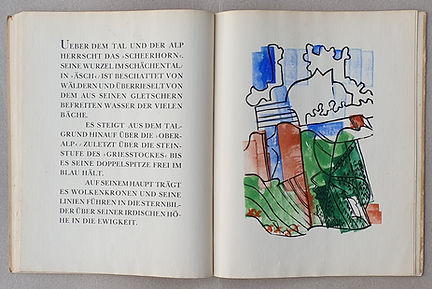 UEBER DEM TAL UND DER ALP
HERRSCHT DAS »SCHEERHORN«.
SEINE WURZEL IM SCHÄCHENTAL,
IN »ÄSCH«, IST BESCHATTET VON
WÄLDERN UND ÜBERRIESELT VON
DEM AUS SEINEN GLETSCHERN
BEFREITEN WASSER DER VIELEN
BÄCHE.
ES STEIGT AUS DEM TAL-
GRUND HINAUF ÜBER DIE »OBER-
ALP«, ZULETZT ÜBER DIE STEIN-
STUFE DES »GRIESSTOCKES« BIS
ES SEINE DOPPELSPITZE FREI IM
BLAU HÄLT.
AUF SEINEM HAUPT TRÄGT
ES WOLKENKRONEN UND SEINE
LINIEN FÜHREN IN DIE STERNBIL-
DER ÜBER SEINER IRDISCHEN HÖ-
HE IN DIE EWIGKEIT.